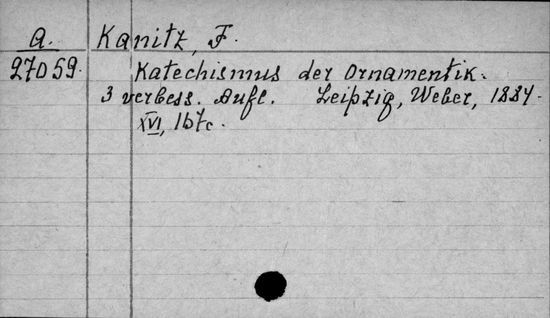 A. Kanitz, F.
27059. Katechismus der Ornamentik.
3 verbess. Aufl. Leipzig, Weber, 1884.
XVI, 167c.